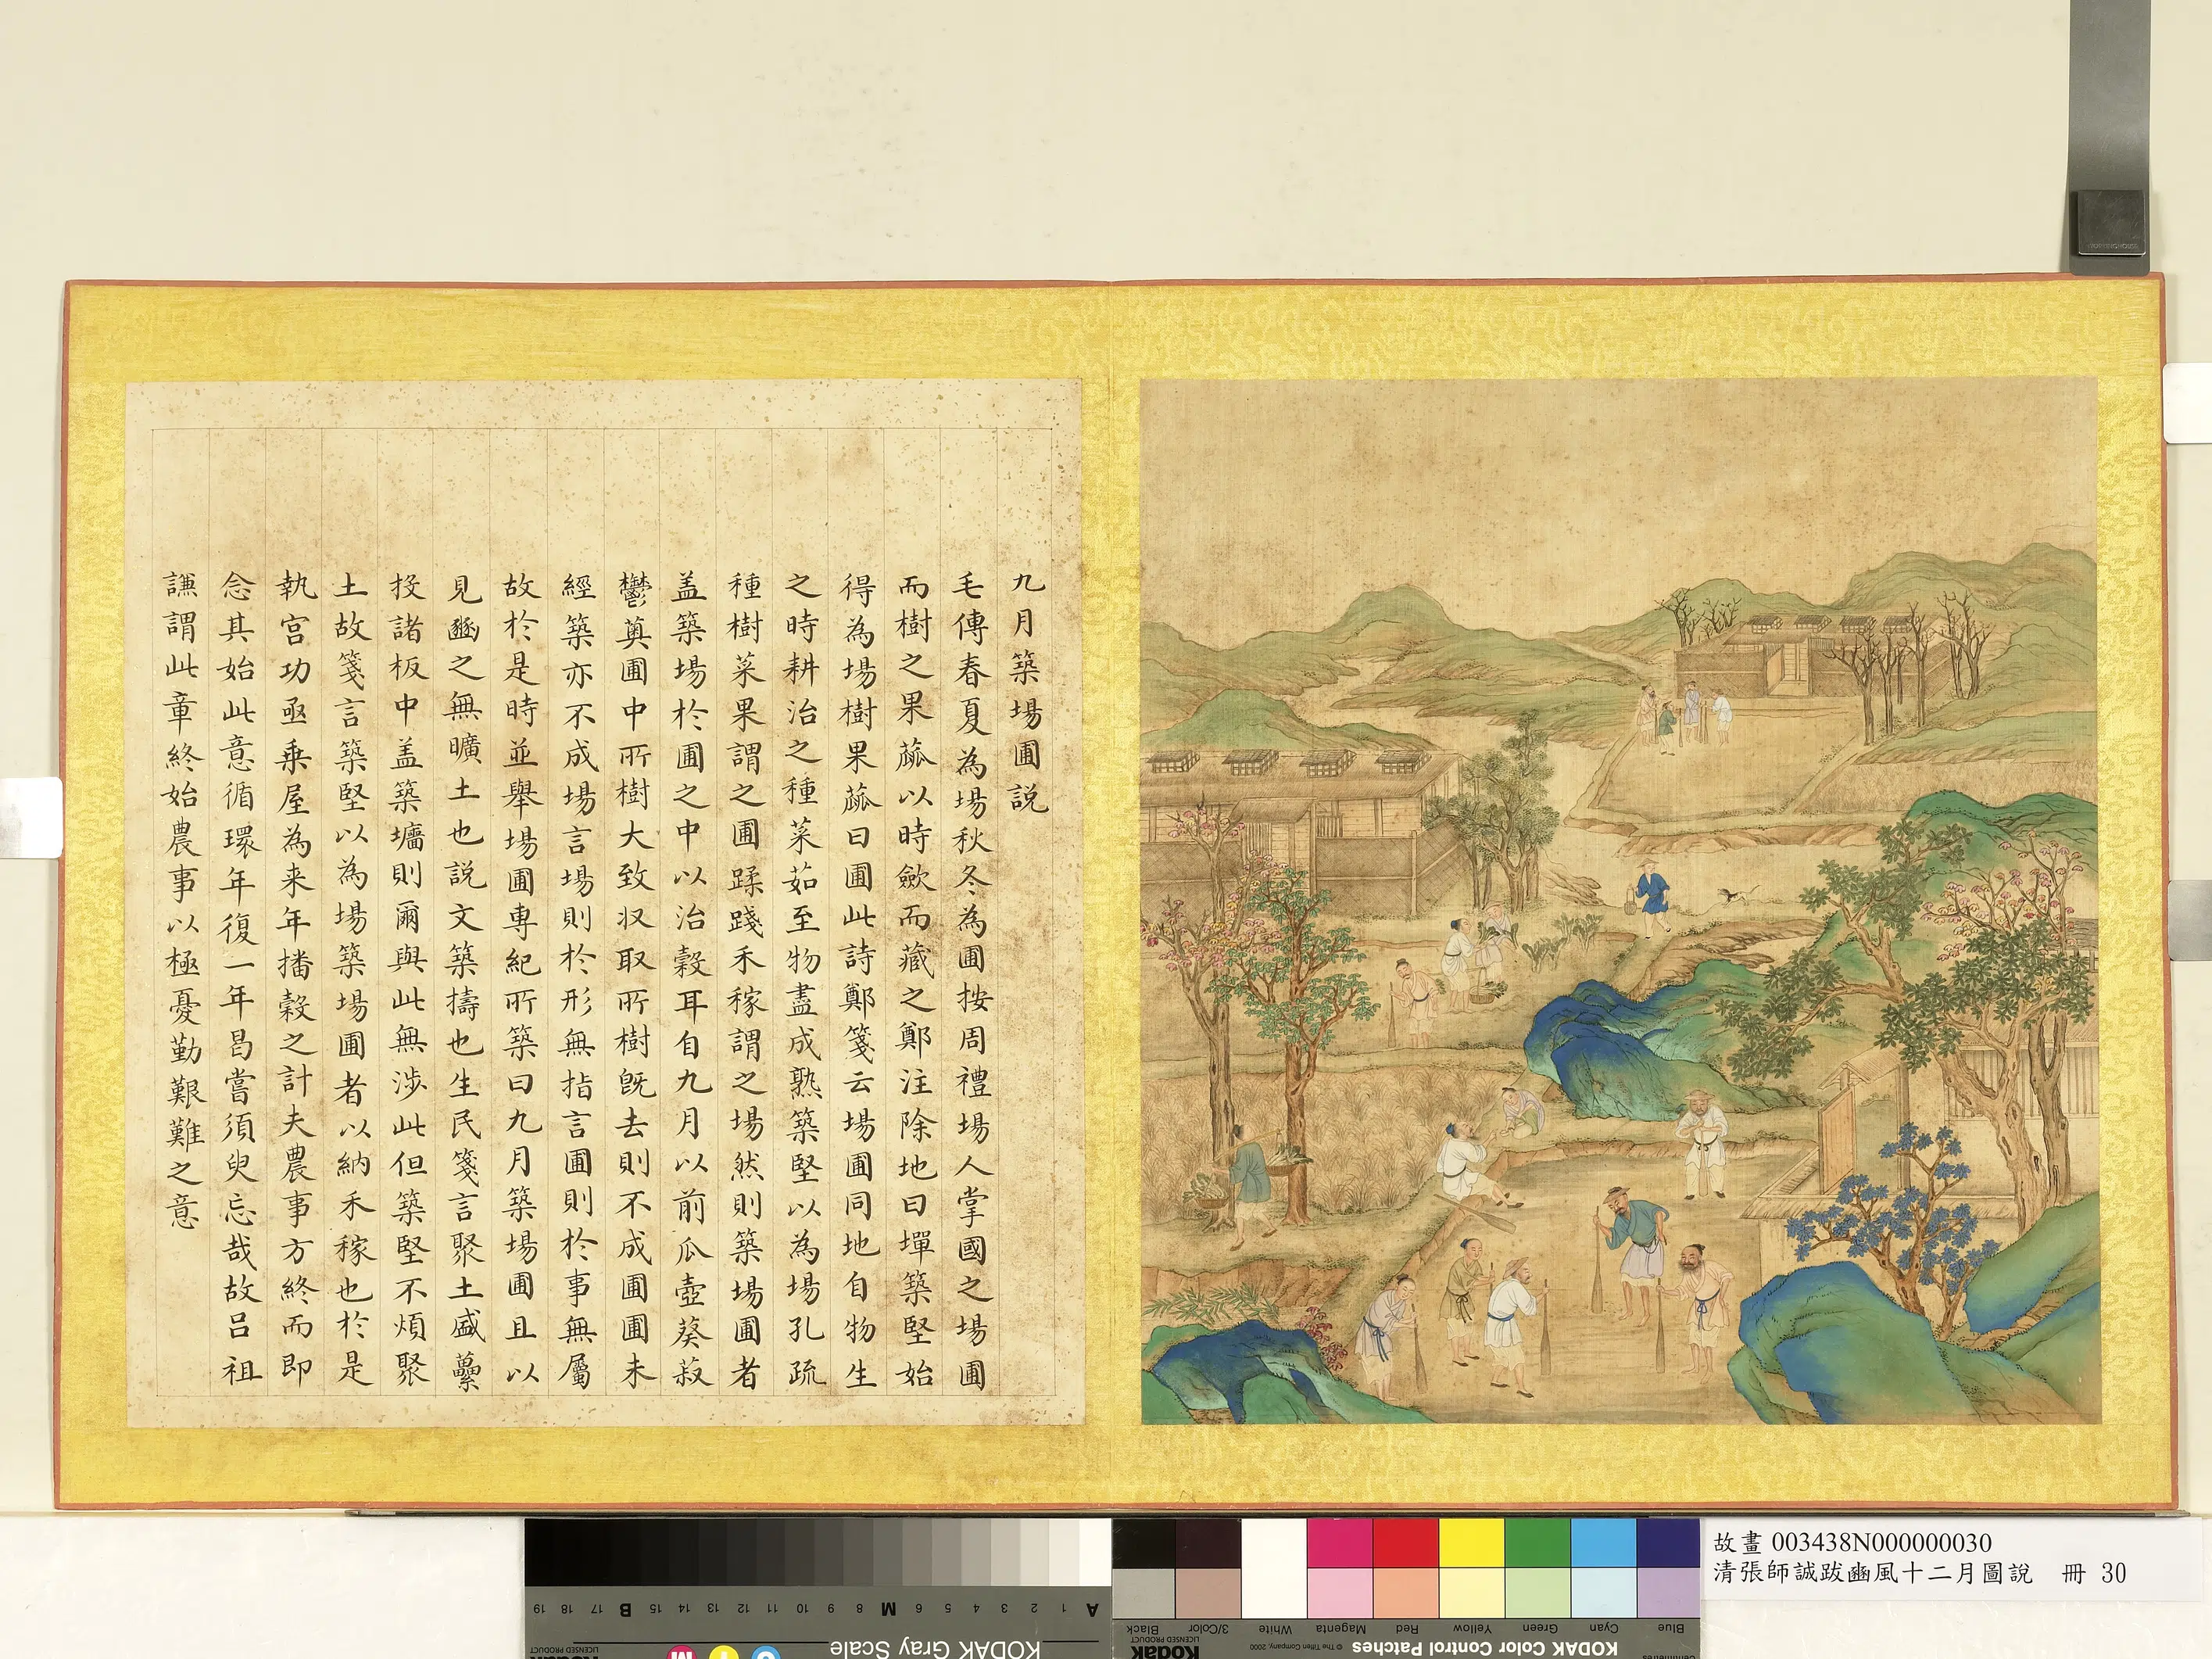 九月築場圃説
毛傳春夏為場秋冬為圃按周禮場人掌國之場圃
而樹之果蓏以時歛而藏之鄭注除地曰墠築堅始
得為場樹果蓏曰圃此詩鄭箋云場圃同地自物生
之時耕治之種菜茹至物盡成熟築堅以為場孔疏
種樹菜果謂之圃蹂踐禾稼謂之場然則築場圃者
盖築場於圃之中以治穀耳自九月以前瓜壺葵菽
鬱薁圃中所樹大致収取所樹既去則不成圃圃未
經築亦不成場言場則於形無指言圃則於事無屬
故於是時並舉場圃専紀所築曰九月築場圃且以
見豳之無曠土也説文築擣也生民箋言聚土盛虆
投諸板中盖築墉則爾與此無涉此但築堅不煩聚
土故箋言築堅以為場築場圃者以納禾稼也於是
執宮功亟乗屋為来年播穀之計夫農事方終而即
念其始此意循環年復一年曷嘗須臾忘哉故呂祖
謙謂此章終始農事以極憂勤艱難之意
故畫 003438N000000030
清張師誠跋豳風十二月圖說 冊 30
KODAK Gray Scale
A 1 2 3 4 5 6 M 8 9 10 11 12 13 14 15 B 17 18 19
KODAK Color Control Patches
© The Tiffen Company, 2000
Kodak
LICENSED PRODUCT
Blue Cyan Green Yellow Red Magenta White 3/Color Black
Centimetres